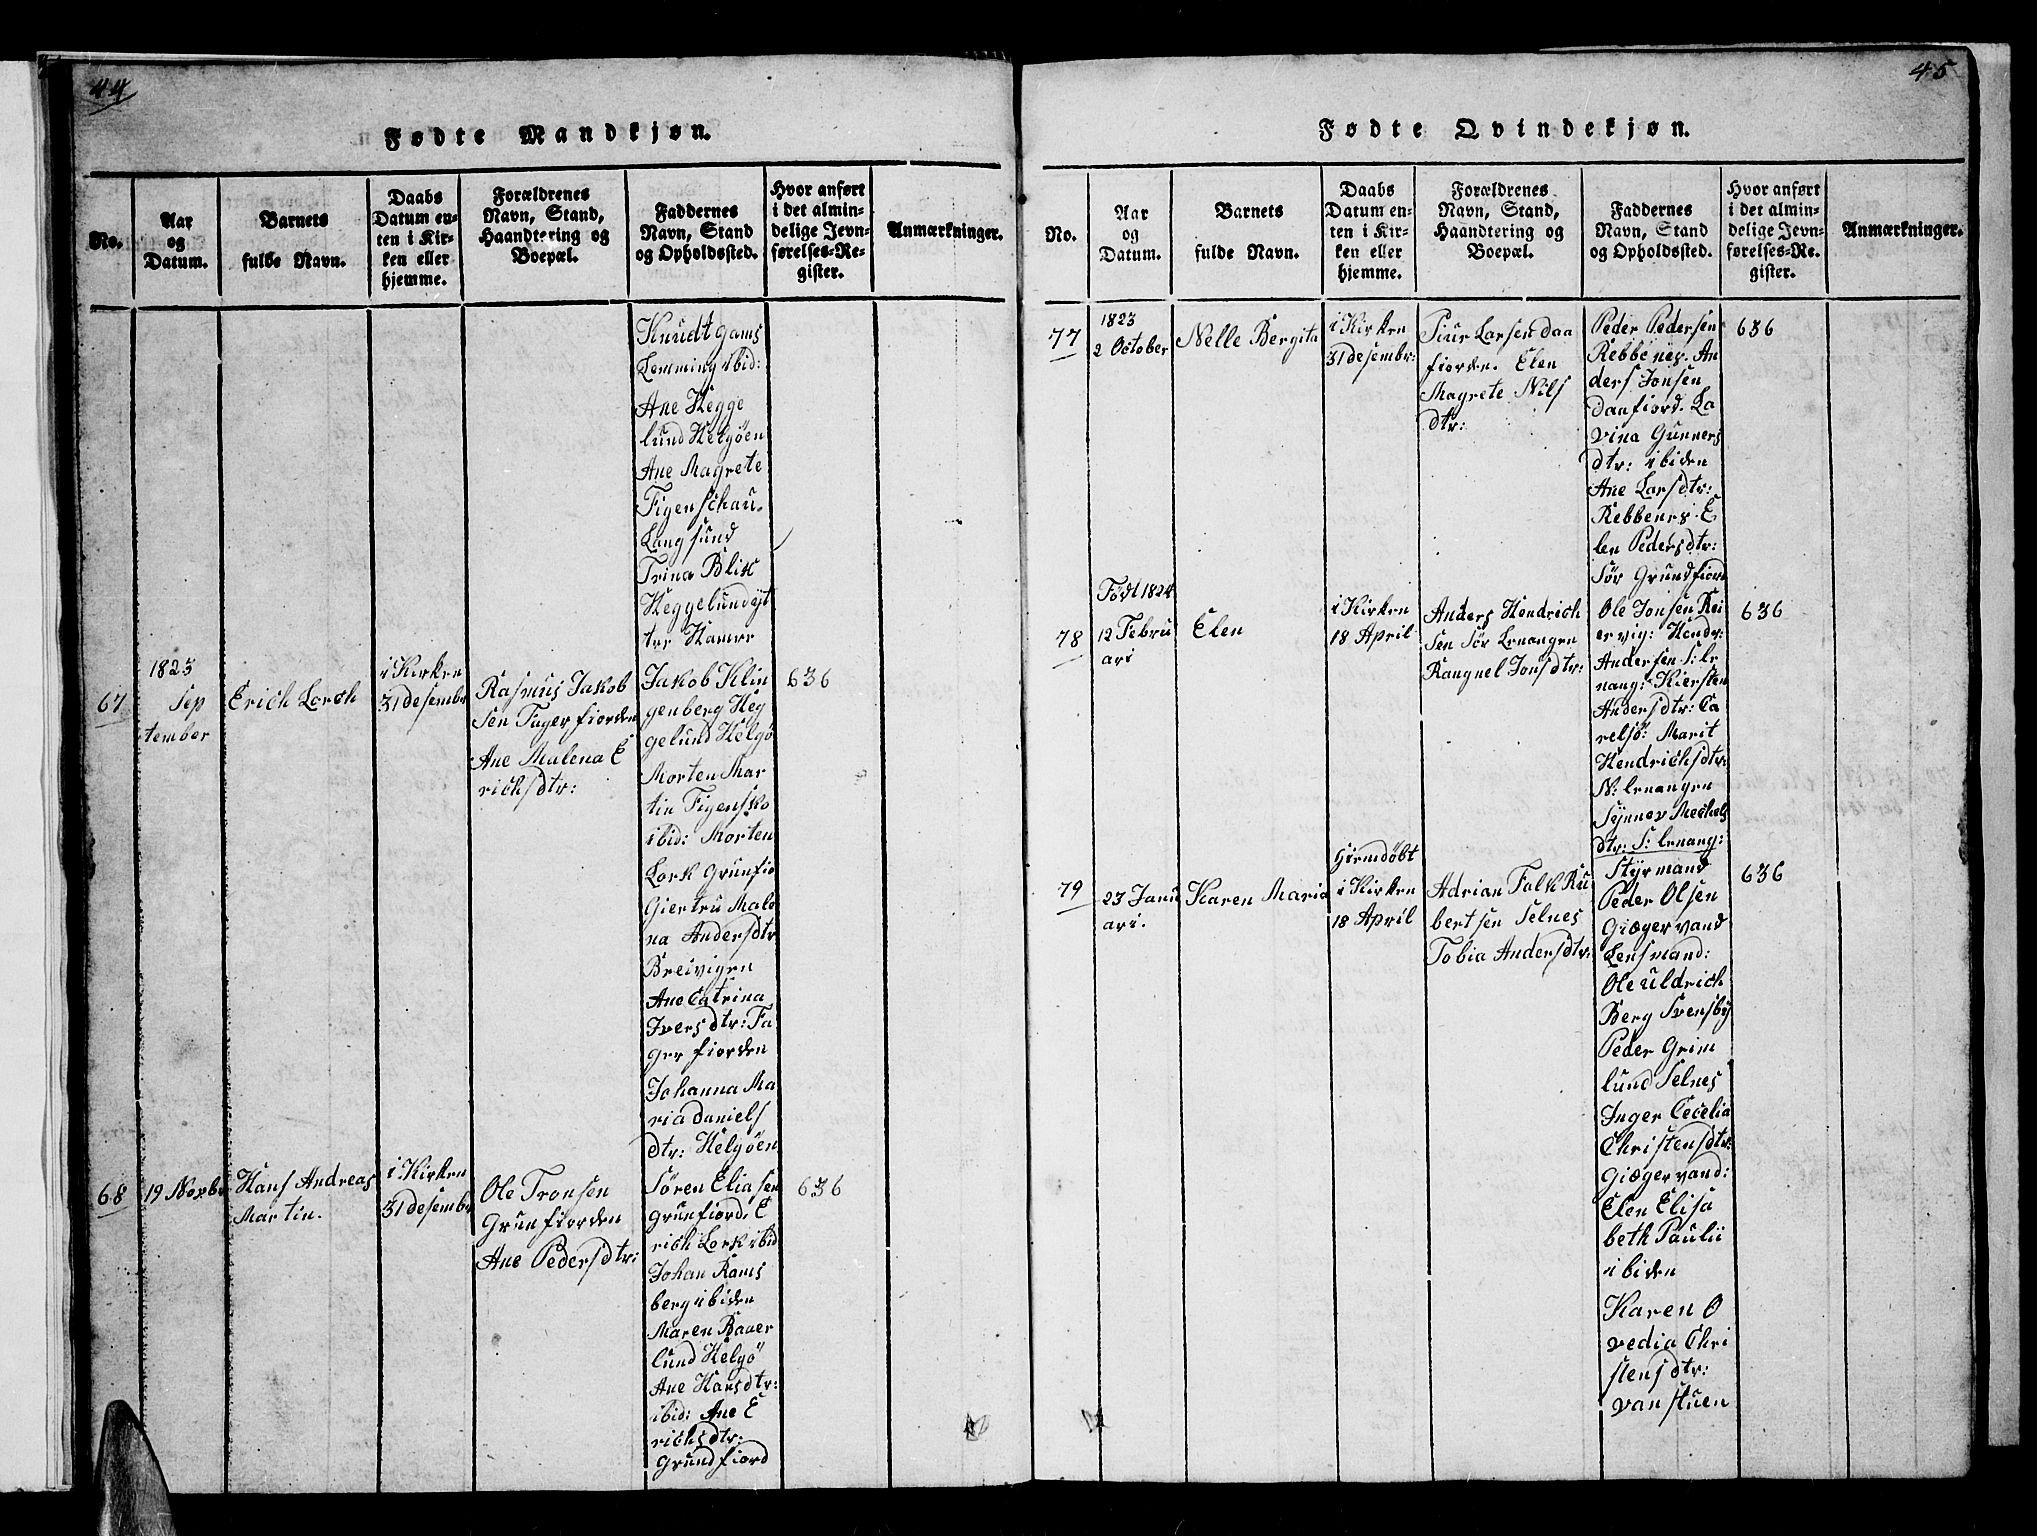 44
Fødte Mandkjøn.
No.
Aar
og
Datum.
Barnets
fulde Navn.
Daabs
Datum en-
ten i Kir-
ken eller
hjemme.
Forældrenes
Navn, Stand,
Haandtering og
Boepæl.
Faddernes
Navn, Stand
og Opholdssted.
Hvor anført
i det almin-
delige Jevn-
førelses-Re-
gister.
Anmærkninger.
Knudt Gams
Lemming ibid:
Ane Hegge
lund Helgöen
Ane Magrete
Figenschau
Langsund
Trina Blix
Heggelund
Hamre
67
1823
Sep
tember
Erich Lorch
i Kirken
31 desembr
Rasmus Jakob
sen Fager fiorden
Ane Malena E
richsdtr:
Jakob Klin
genberg Heg
gelund Helgö
Morten Mar
tin Figensko
ibid: Morten
Lork Grunfio
Giertru Male
na Andersdtr
Breivigen
Ane Catrina
Iversdtr: Fa
ger fiorden
Johanna Ma
ria Daniels
dtr: Helgöen
636
68
19 Novbr
Hans Andreas
Martin.
i Kirken
31 desembr
Ole Tronsen
Grunfiorden
Ane Pedersdtr:
Sören Eliasen
grunfiord. E
rich Lork ibid
Johan Rams
berg ibiden
Maren Baner
lund Helgö
Ane Hansdtr:
ibid: Ane E
richsdtr:
Grundfiord
636
45
Fødte Qvindekjøn.
No.
Aar
og
Datum.
Barnets
fulde Navn.
Daabs
Datum en-
ten i Kir-
ken eller
hjemme.
Forældrenes
Navn, Stand,
Haandtering og
Boepæl.
Faddernes
Navn, Stand
og Opholdssted.
Hvor anført
i det almin-
delige Jevn-
førelses-Re-
gister.
Anmærkninger.
77
1823
2 October
Nelle Bergita
i Kirken
31 desembr:
Siur Larsen Daa
fiorden. Elen
Magrete Nils
dtr:
Peder Pedersen
Rebbenes. An
ders Jonsen
Daafiord. La
vina Gunners
dtr: ibiden
Ane Larsdtr:
Rebbenes. E
len Pedersdtr:
Sör Grundfiord
636
78
Födt 1824
12 Febru
ari
Elen
i Kirken
18 April
Anders Hendrich
sen Sör Lenangen
Rangnel Jonsdtr:
Ole Jonsen Rei
ervig: Hendr:
Andersen S: le
nang: Kiersten
Andersdtr: Ca
relsö: Marit
Hendrichsdtr:
N: lenangen
Synnev Mechels
dtr: S: lenang:
636
79
23 Janu
ari.
Karen Maria
Hiemdöbt
i Kirken
18 April
Adrian Falk Ru
bertsen Selnes
Tobia Andersdtr:
Styrmand
Peder Olsen
Giæger vand
Lensmand:
Ole Uldrich
Berg Svensby
Peder Grim
lund Selnes
Inger Cecelia
Christensdtr:
Giægervand:
Elen Elisa
beth Paulii
ibiden
Karen O
vedia Chri
stensdtr:
van stuen
636